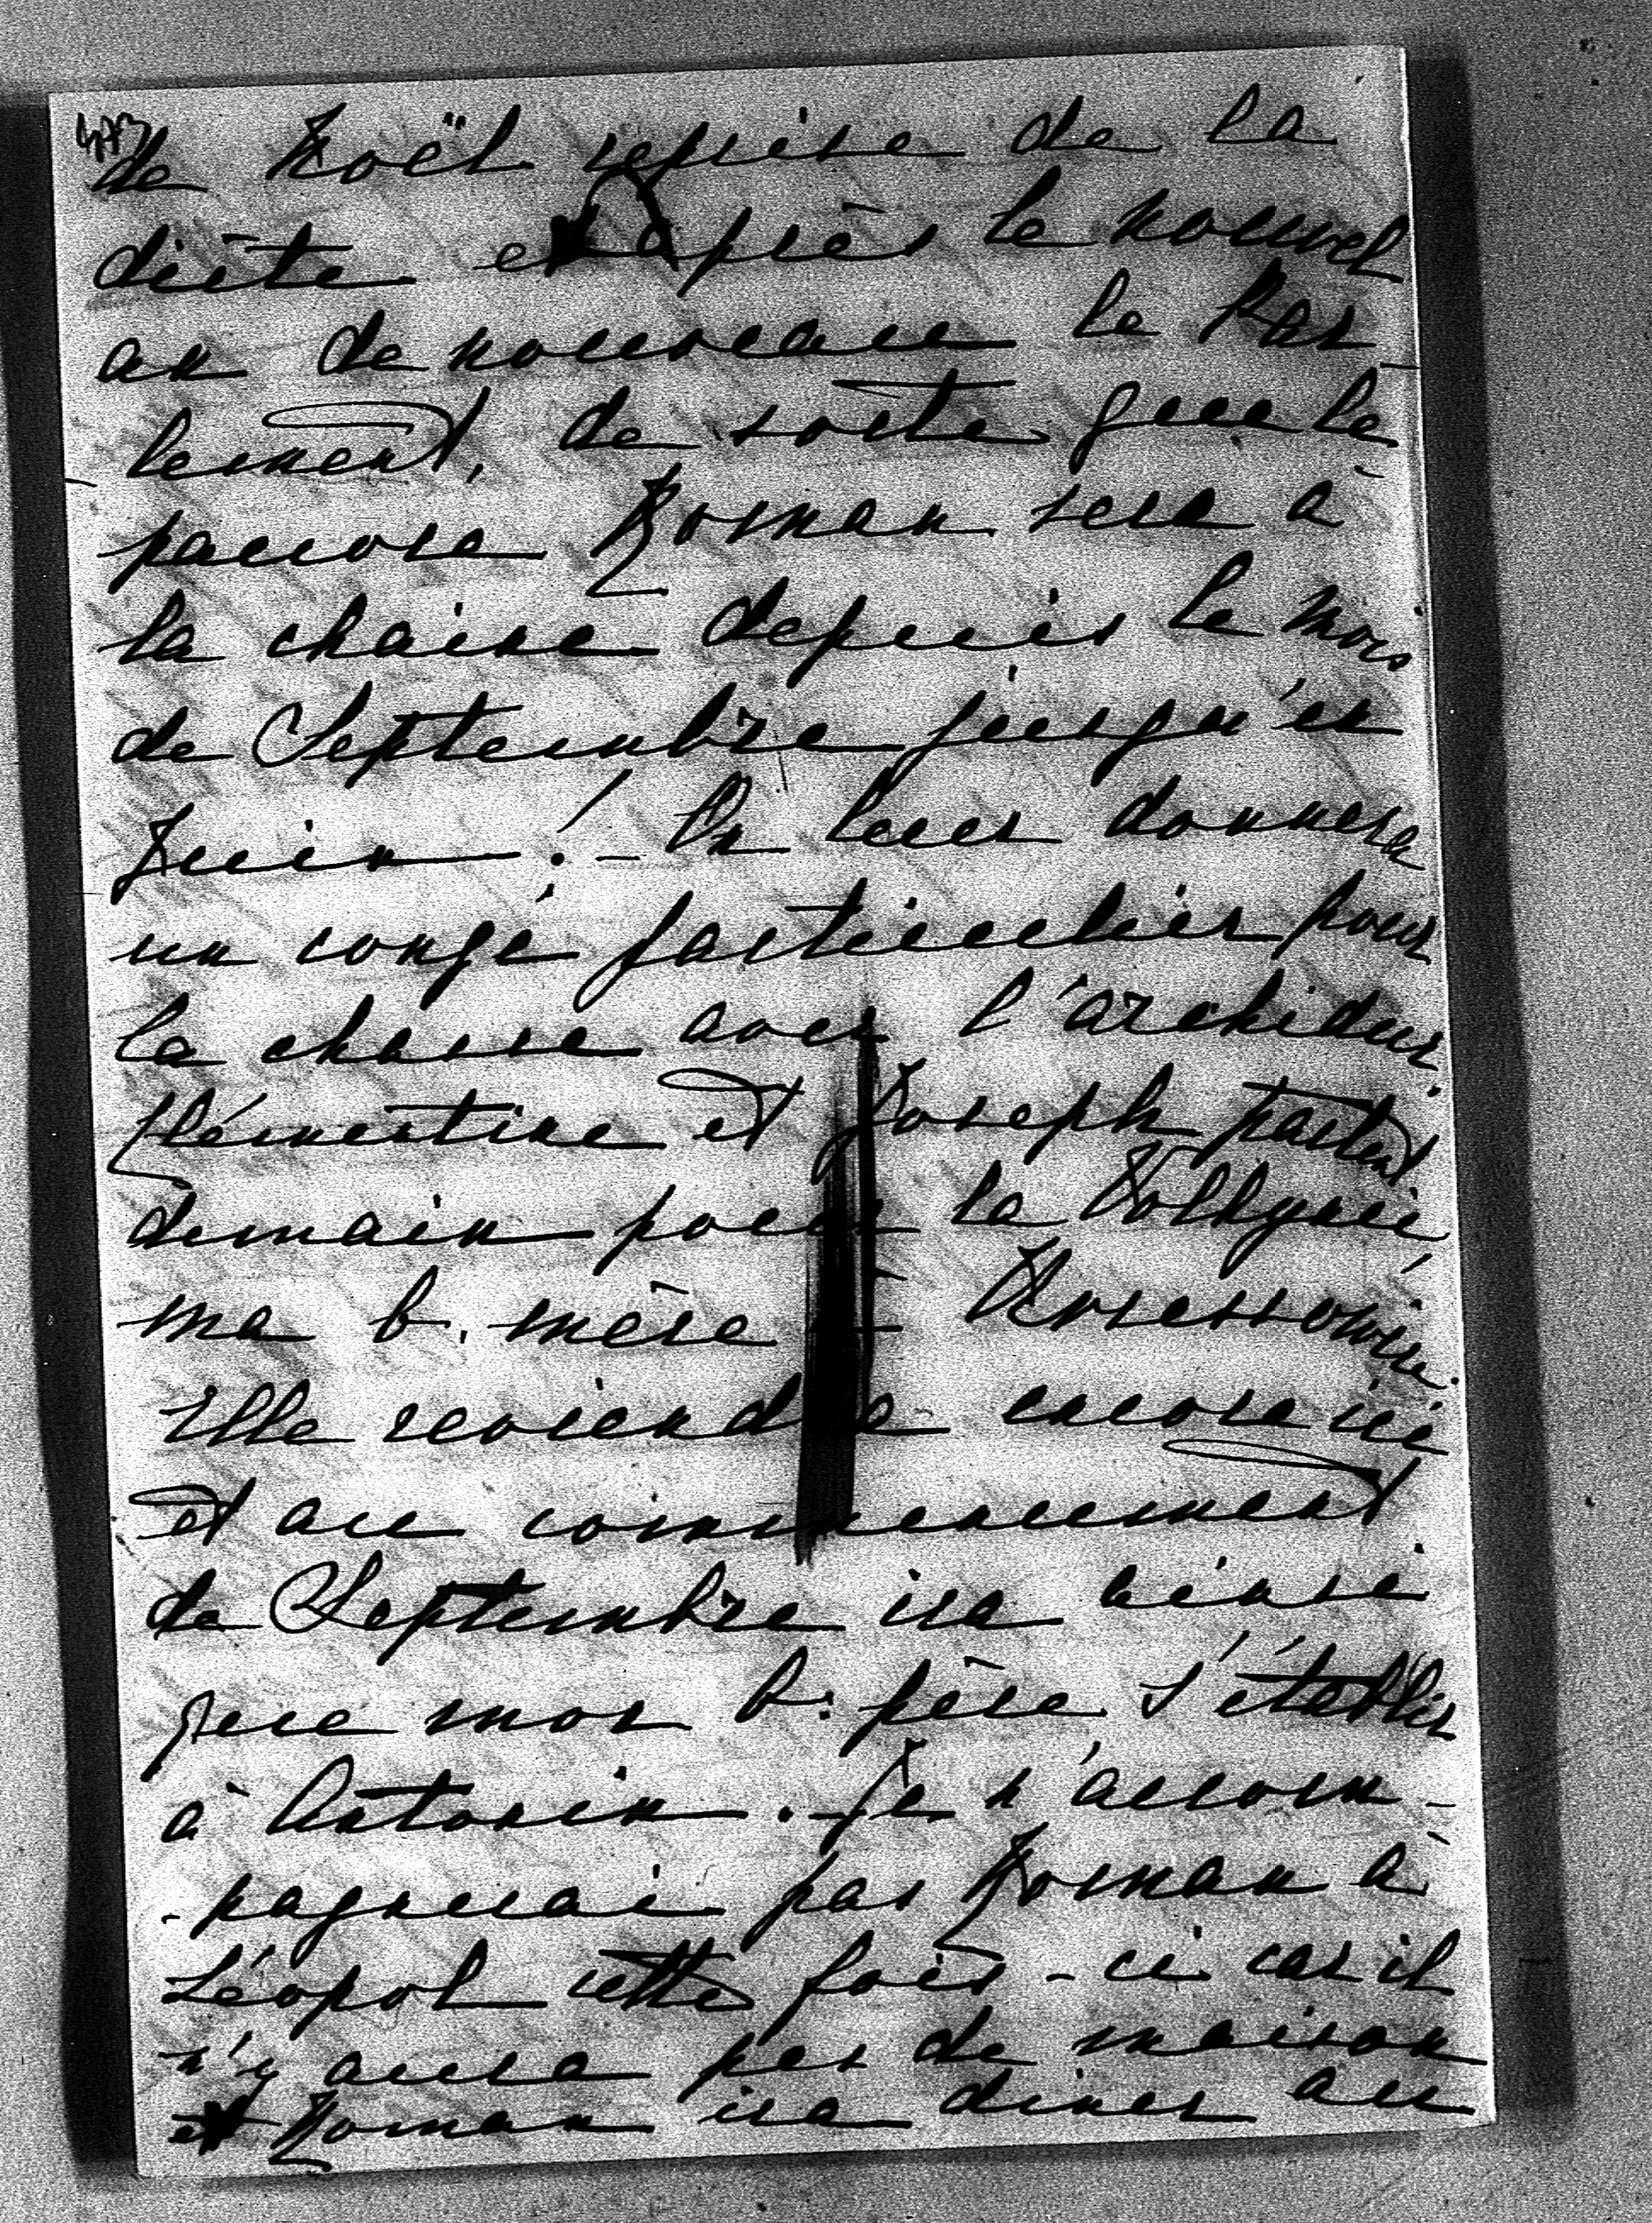 473
de Noël reprise de la
diète et après le nouvel
an de nouveau le Par-
-lement, de sorte que le
pauvre Roman sera à
la chaise depuis le mois
de Septembre jusqu'en
Juin ! – On leur donnera
un congé particulier pour
la chasse avec l'archiduc.
Clémentine et Joseph partent
demain pour la Volhynie,
ma b. mère – Krzessowice.
Elle reviendra encore ici
et au commencement
de Septembre ira ainsi
que mon b. père s'établir
à Antonin. – Je n'accom-
-pagnerai pas Roman à
Léopol cette fois-ci car il
n'y aura pas de maison
et Roman ira diner au